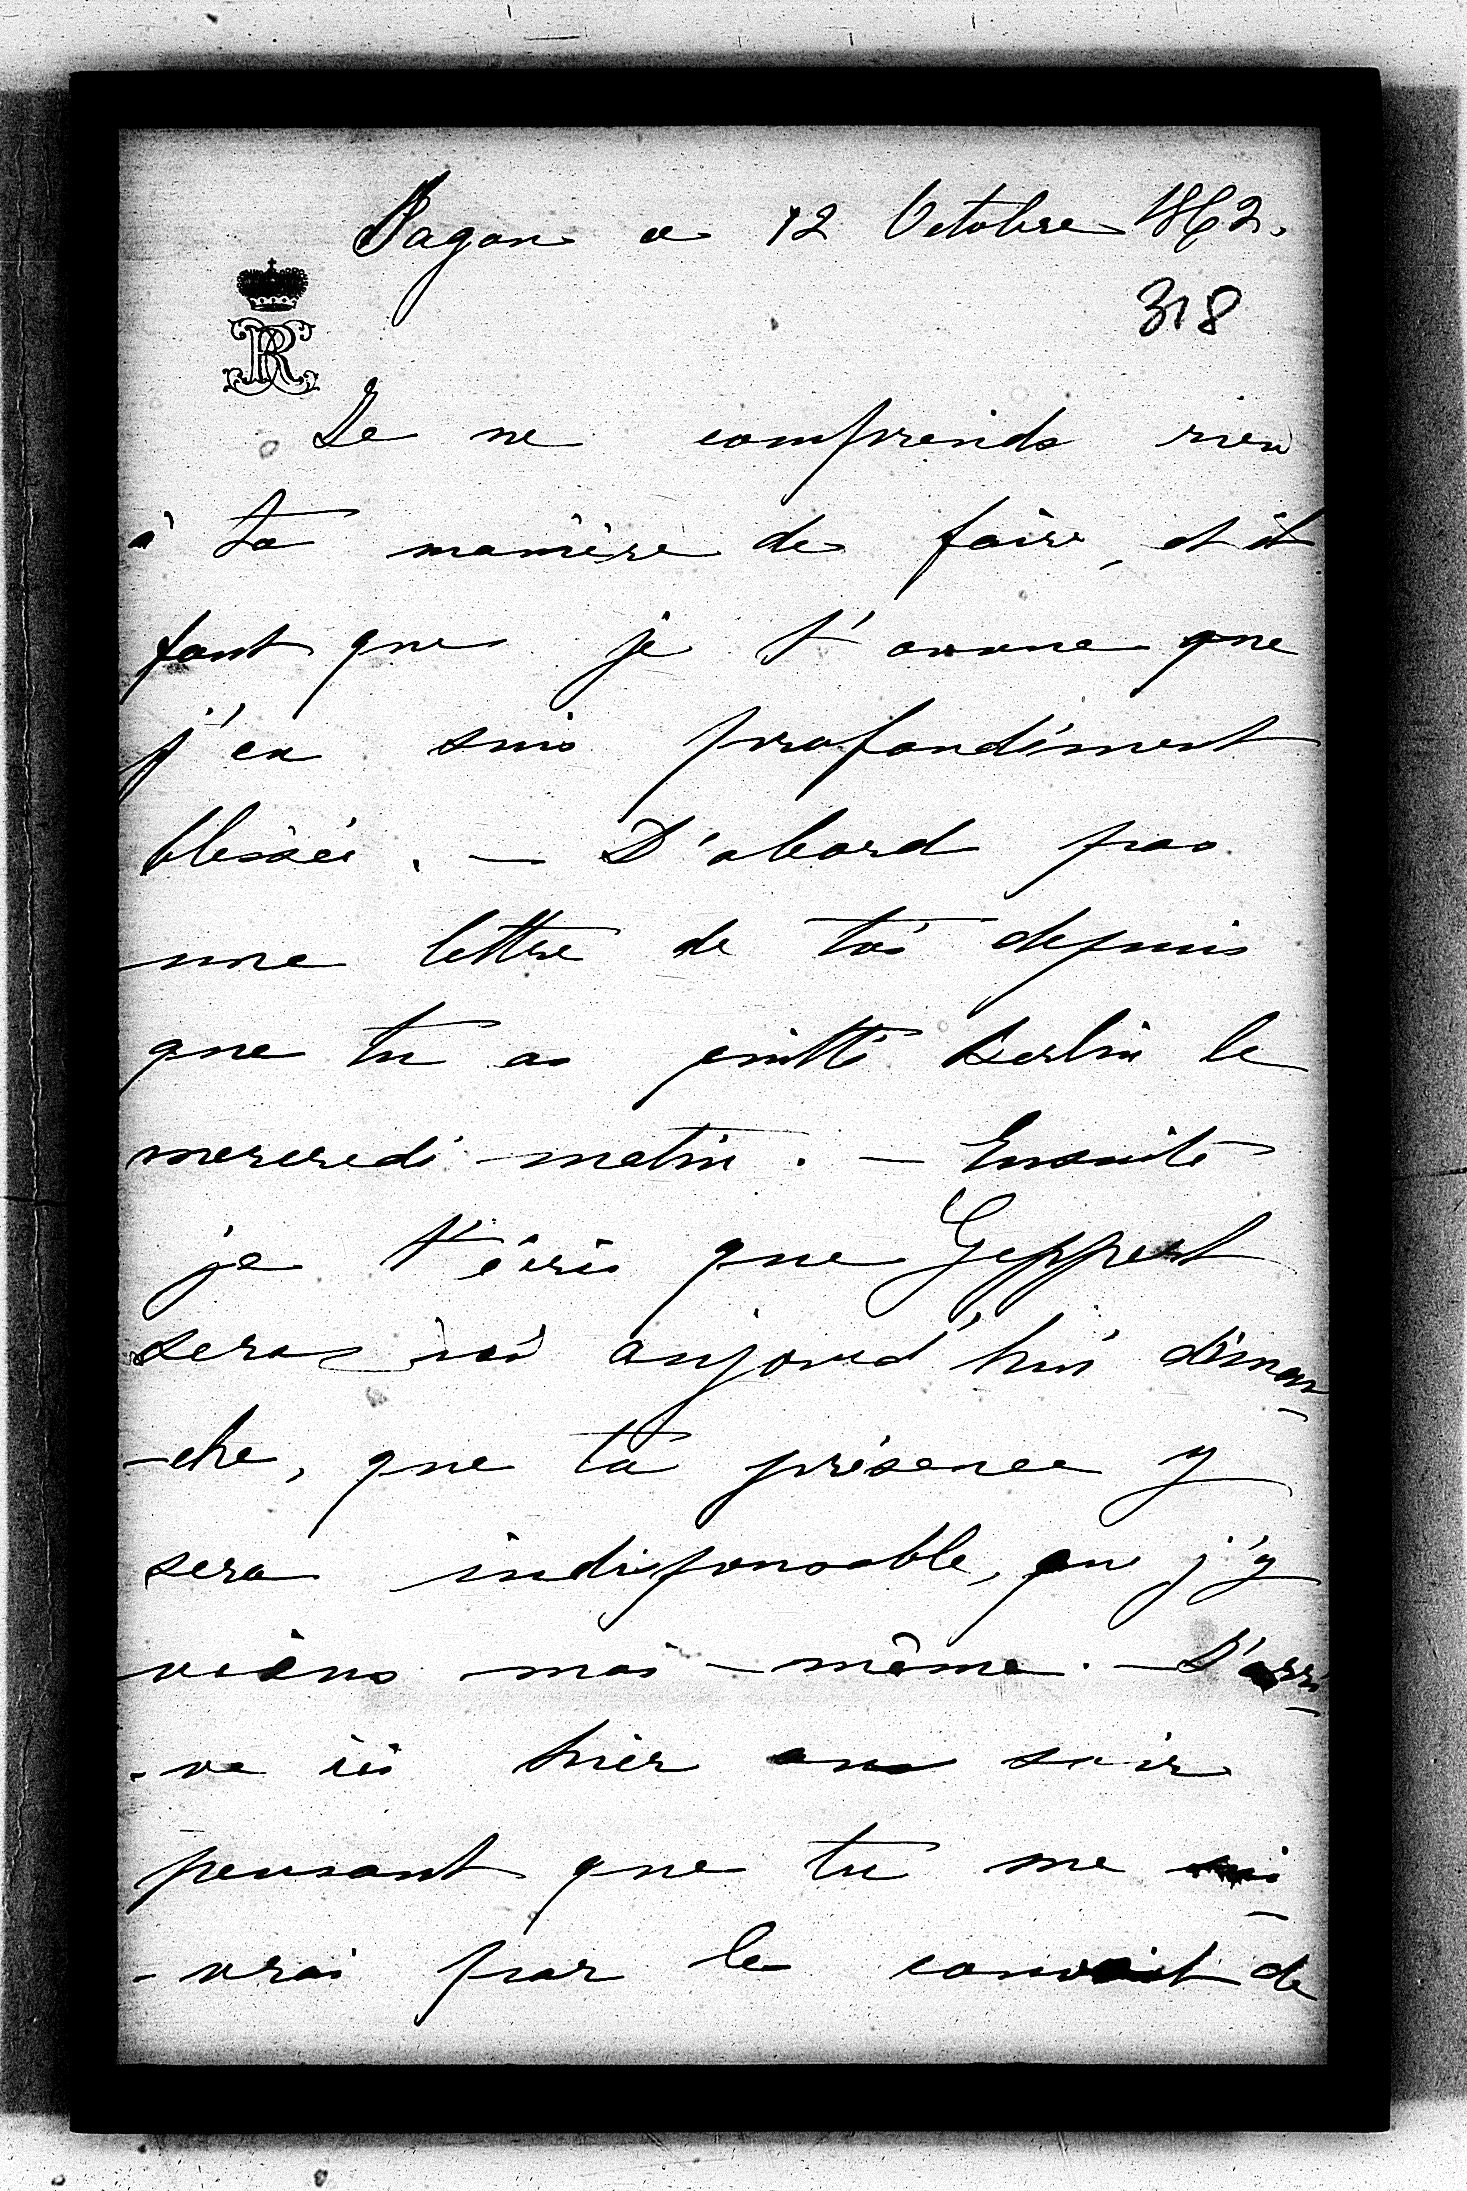 Sagan ce 12 Octobre 1862.
318
Je ne comprends rien
à ta manière de faire, et il
faut que je t'avoue que
j'en suis profondément
blessée. — D'abord pas
une lettre de toi depuis
que tu as quitté Berlin le
mercredi matin. — Ensuite
je t'écris que Geppert
sera ici aujourd'hui diman
-che, que ta présence y
sera indispensable, que j'y
viens moi-même. — J'arri
-ve ici hier au soir
pensant que tu me sui
-vrai par le convoi de